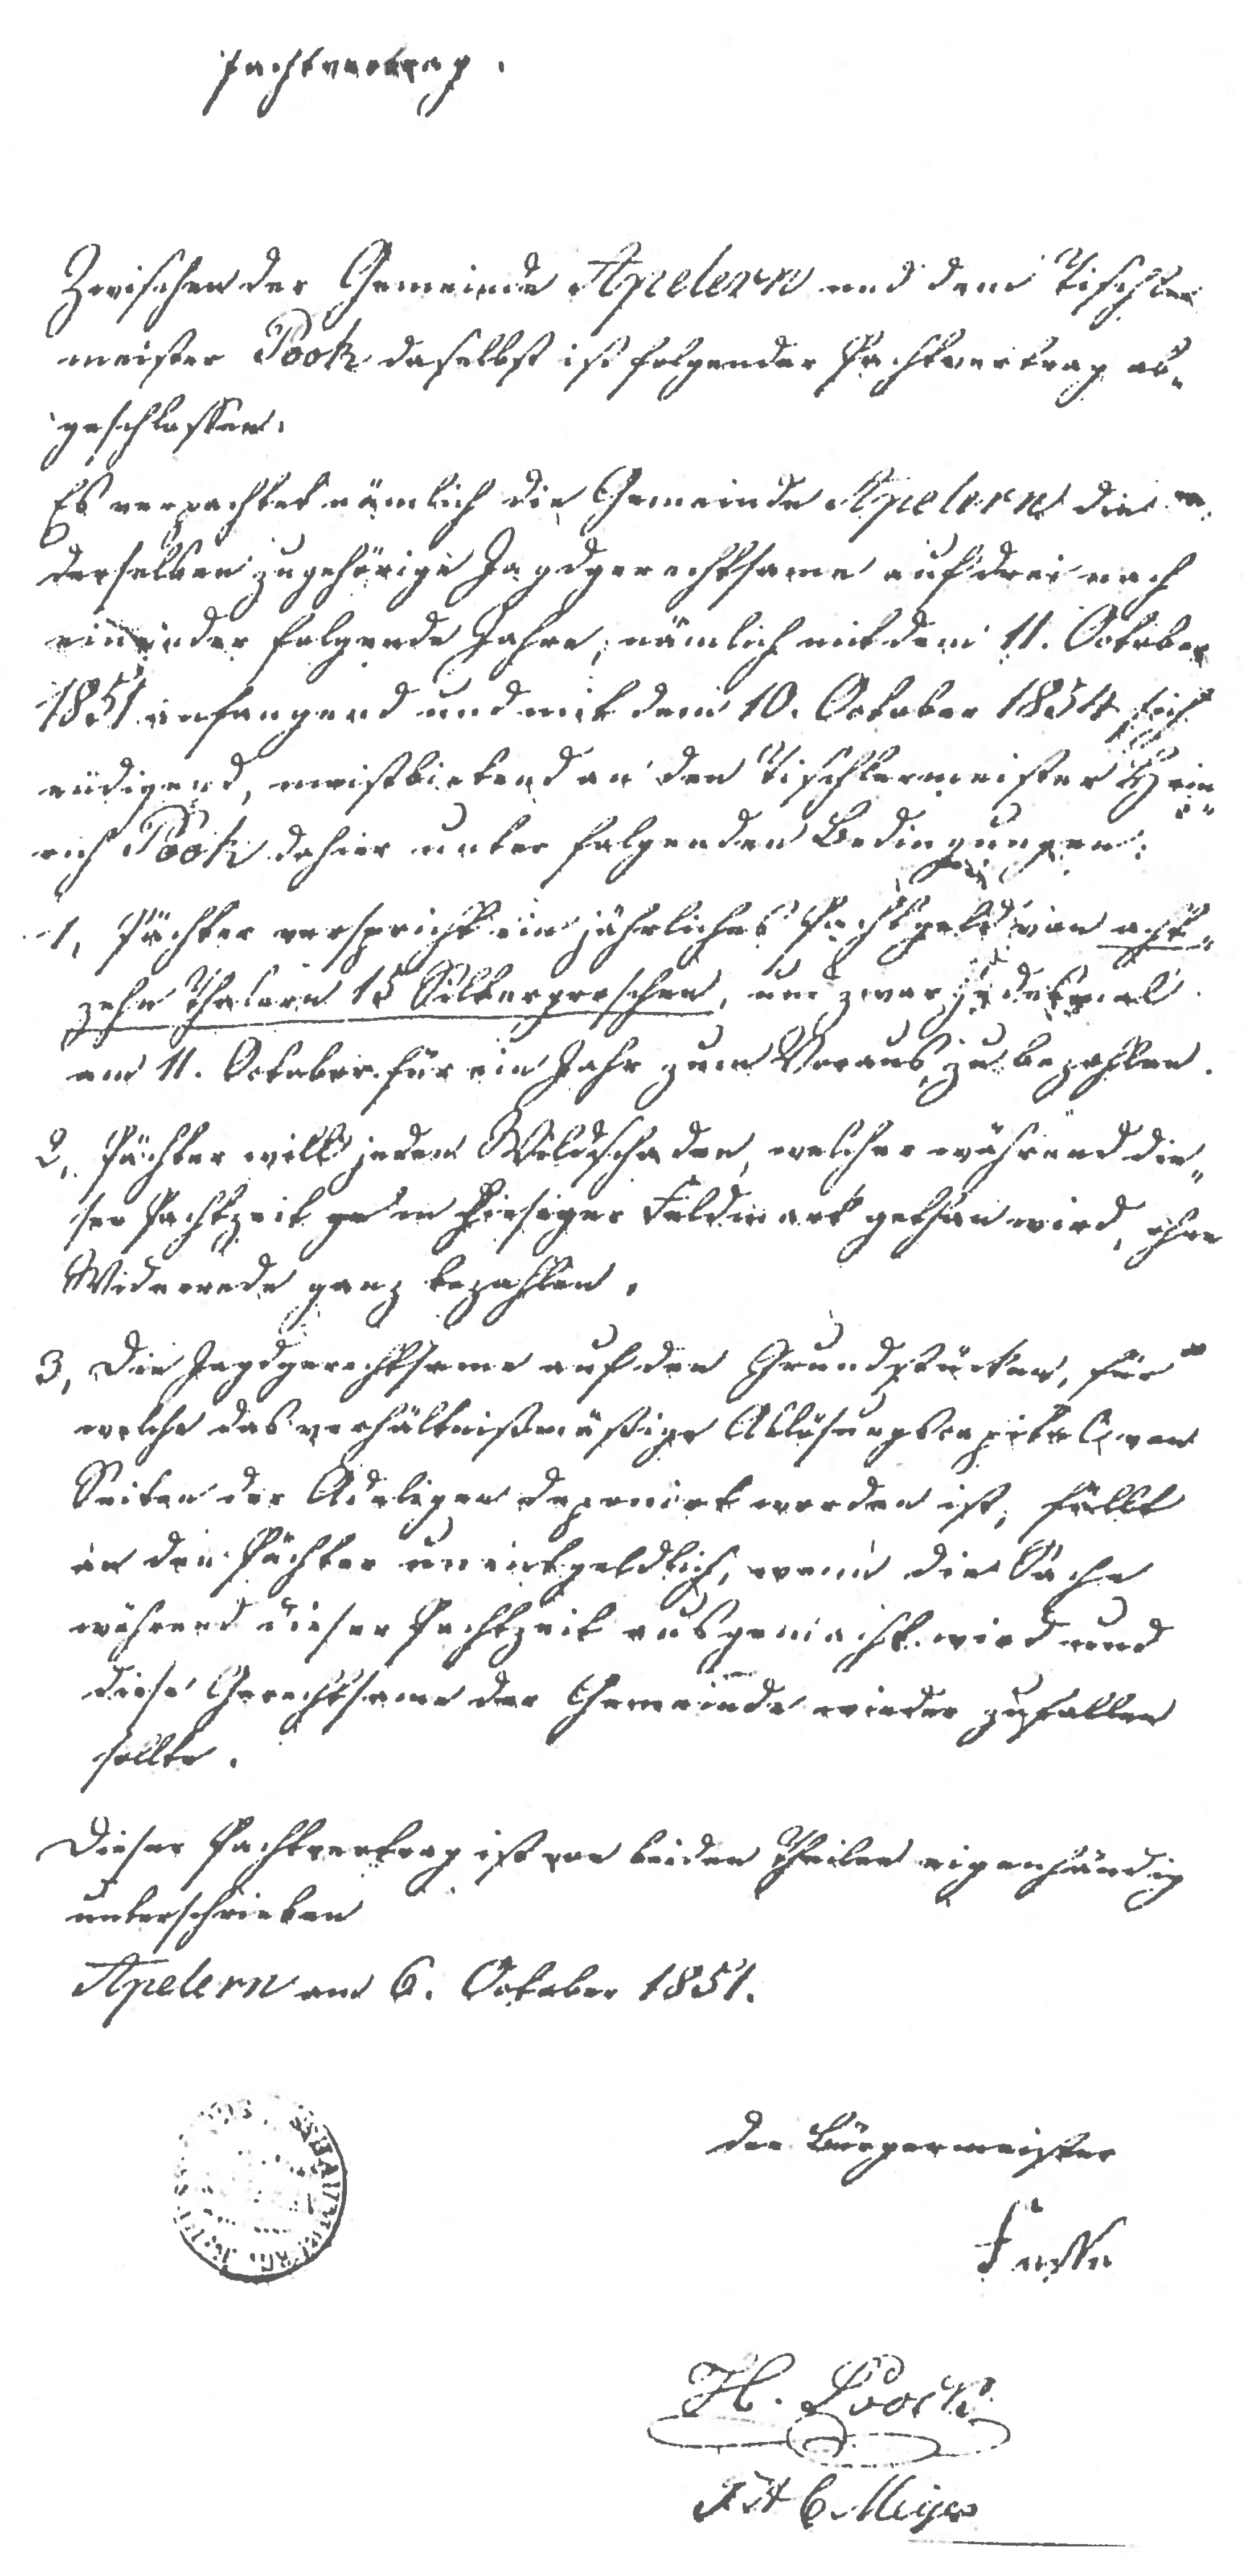 Pachtvertrag.
Zwischen der Gemeinde Apelern und dem Tischler
meister Pook daselbst ist folgender Pachtvertrag ab-
geschlossen.
Es verpachtet nämlich die Gemeinde Apelern die
derselben zugehörige Jagdgerechtsame auf drei nach
einander folgende Jahre, nämlich mit dem 11. October
1851 anfangend und mit dem 10. October 1854 sich
endigend, meistbietend an den Tischlermeister Hein-
rich Pook dahier unter folgenden Bedingungen:
1, Pächter verspricht ein jährliches Pachtgeld von acht-
zehn Thalern 15 Silbergroschen, und zwar jedesmal
am 11. October für ein Jahr zum Voraus zu bezahlen.
2, Pächter will jeden Wildschaden, welcher während die-
ser Pachtzeit in hiesiger Feldmark gethan wird, ohne
Widerrede ganz bezahlen.
3, Die Jagdgerechtsame auf den Grundstücken, für
welche das verhältnißmäßige Ablösungscapital von
Seiten der Adeligen deponirt worden ist, fällt
an den Pächter unentgeldlich, wenn die Sache
während dieser Pachtzeit ausgemacht wird und
diese Gerechtsame der Gemeinde wieder zufallen
sollte.
Dieser Pachtvertrag ist von beiden Theilen eigenhändig
unterschrieben
Apelern am 6. October 1851.
Der Bürgermeister
H. Pook
Meyer